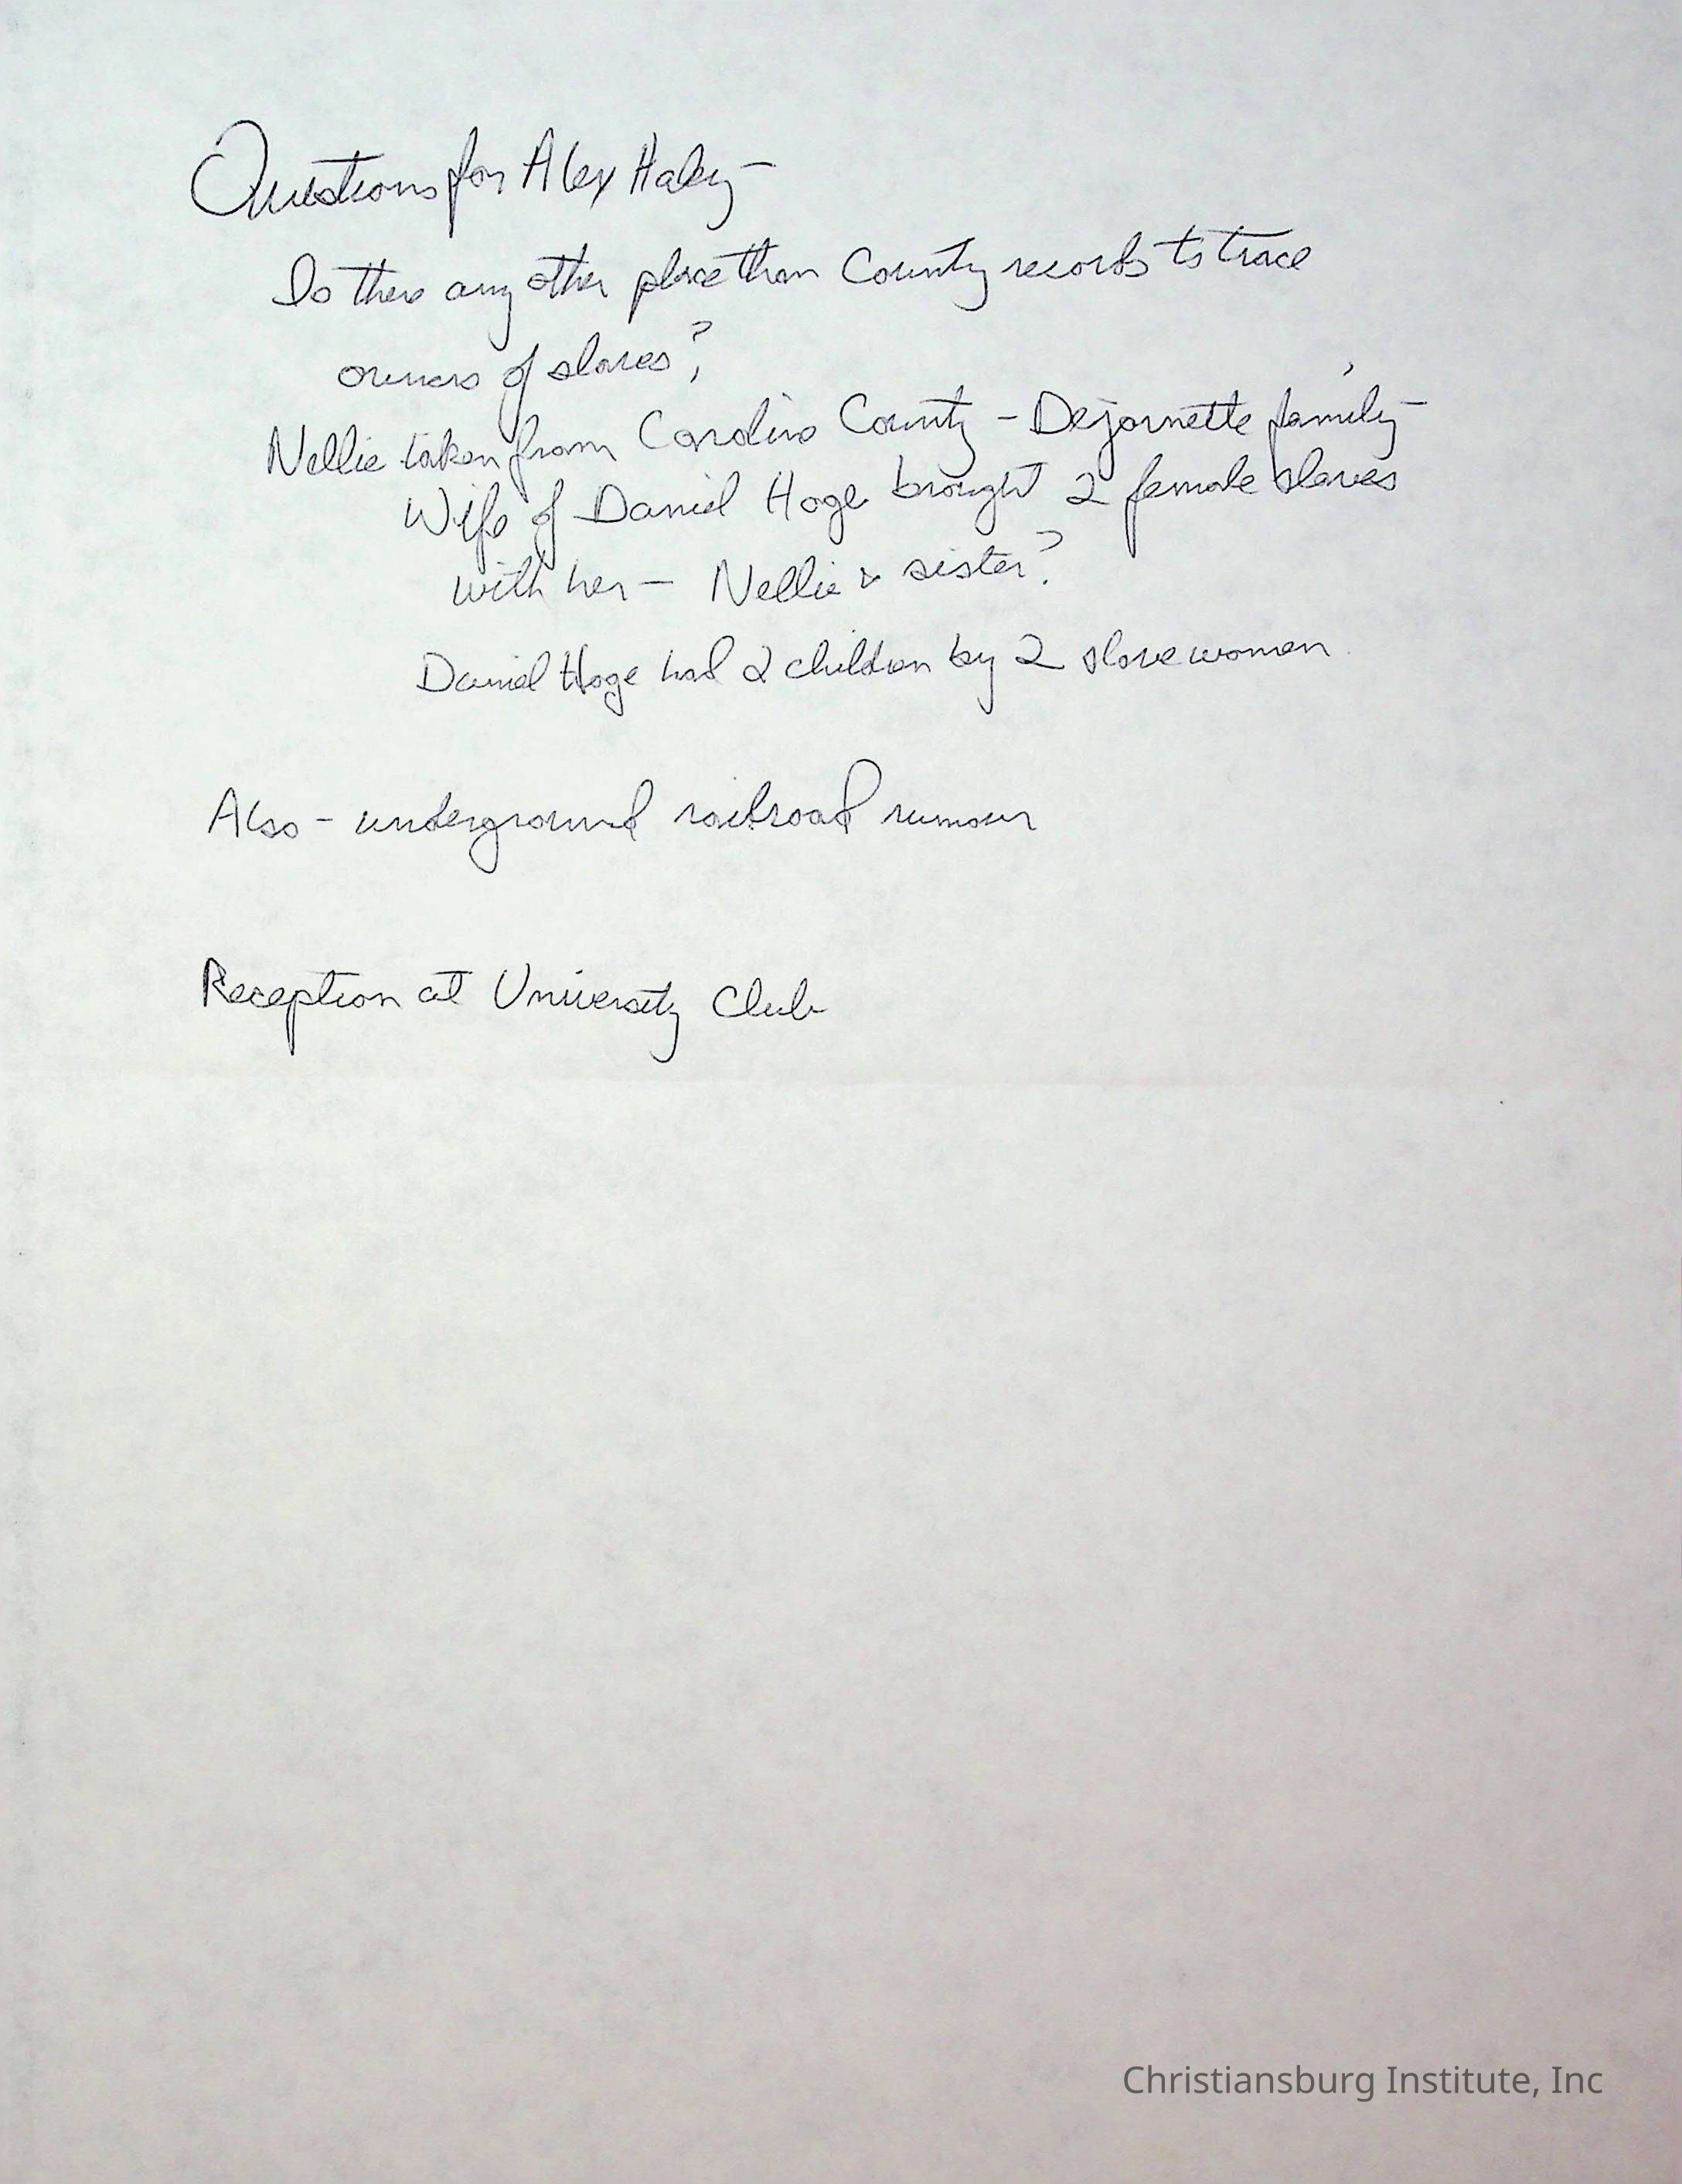 Questions for Alex Haley -
Is there any other place than County records to trace
owners of slaves?
Nellie taken from Caroline County - Dejarnette family -
Wife of Daniel Hoge brought 2 female slaves
with her - Nellie & sister?
Daniel Hoge had 2 children by 2 slave women.
Also - underground railroad rumour
Reception at University Club
Christiansburg Institute, Inc